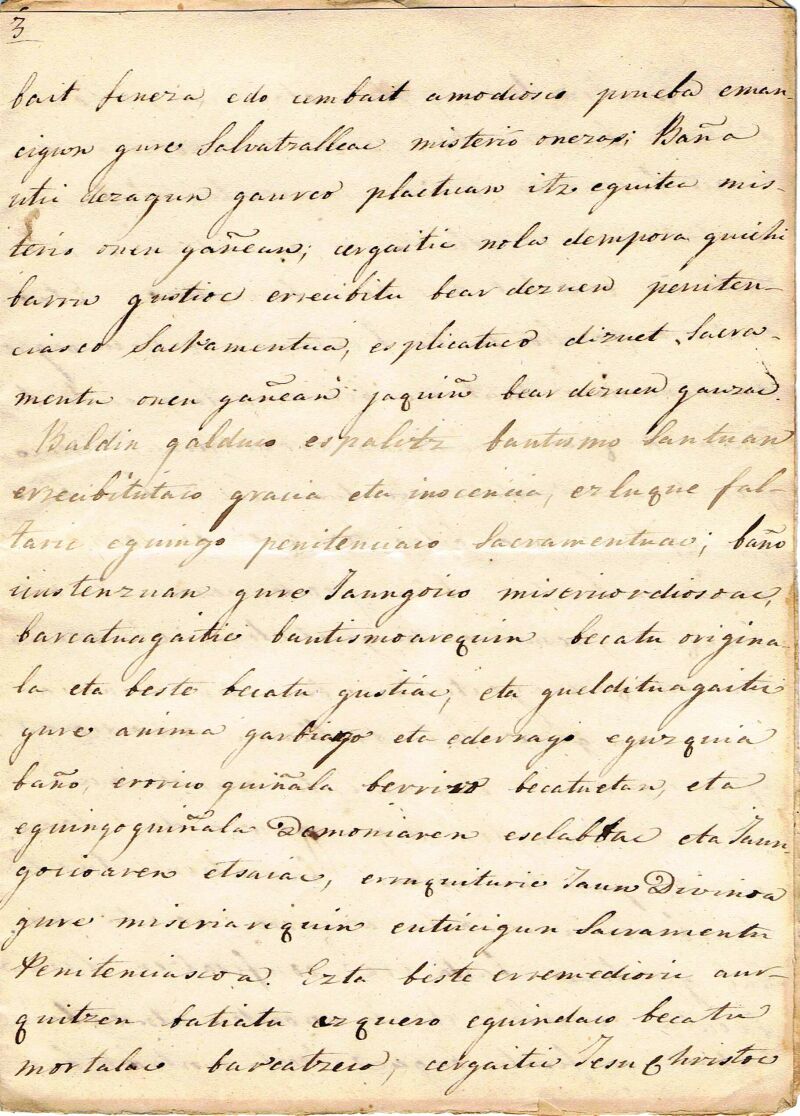 3
bait fineza, edo cembait amodiosco prueba eman-
cigun gure Salvatzalleac misterio onezas; Baña
utci dezagun gaurco plactuan itz eguitea mis-
terio onen gañean; cergaitic nola dempora guichi
barru gustioc errecibitu bear dezuen peniten-
ciasco Sacramentua, esplicatuco dizuet Sacra-
mentu onen gañean jaquiñ bear dezuen gauzac.
Baldin galduco espalitz bautismo Santuan
errecibitutaco gracia eta inocencia, ezluque fal-
taric eguingo penitenciaco Sacramentuac; baño
icustenzuan gure Jaungoico misericordiosoac,
barcatuagaitic bautismoarequin becatu origina-
la eta beste becatu gustiac, eta gueldituagaitic
gure anima garbiago eta ederrago eguzquia
baño, erorico guiñala berriro becatuetan, eta
eguingoguiñala Demoniaren esclabuac eta Jaun-
goicoaren etsaiac, erruquituric Jaun Divinoa
gure miseriarequin eutcicigun Sacramentu
Penitenciascoa. Ezta beste erremedioric aur-
quitzen batiatu ezquero eguindaco becatu
mortalac barcatzeco; cergaitic Jesu Christoc